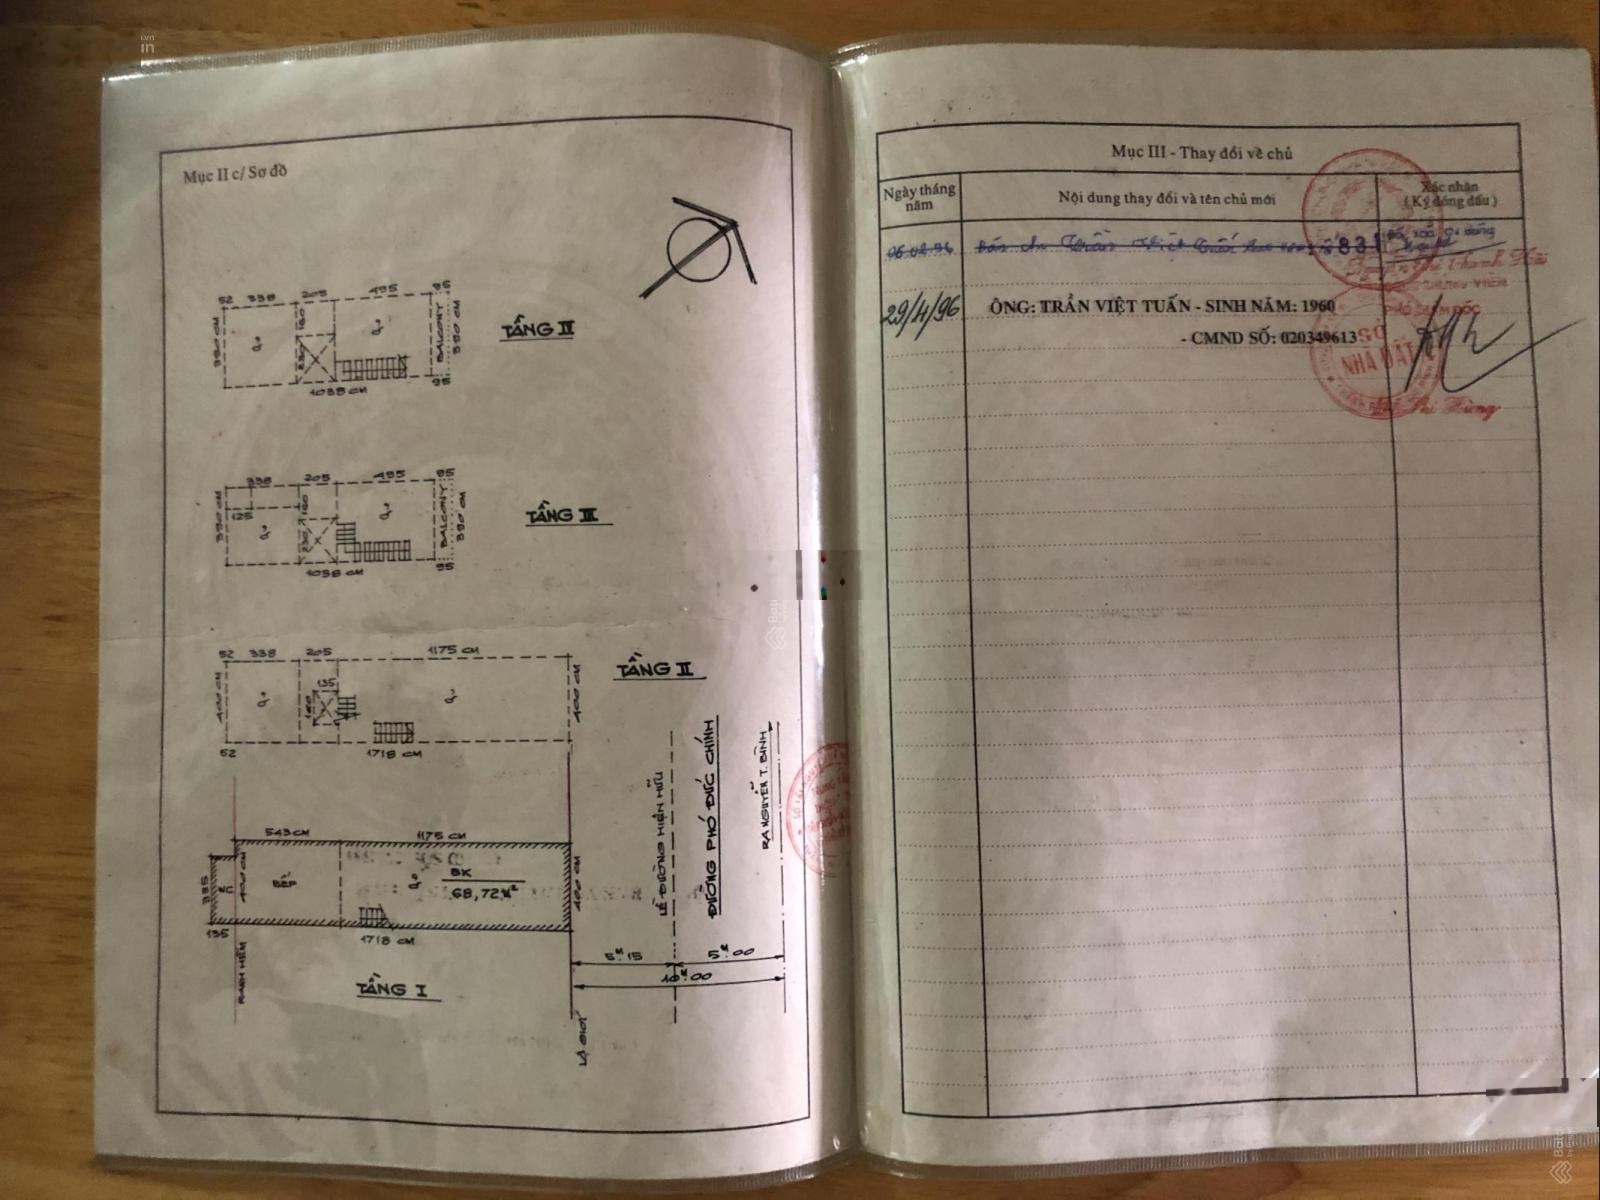 Mục II c/ Sơ đồ
52 338 205 495 95
390 CM
160
230
BALCONY
390 CM
1038 CM
95
TẦNG IV
338 205 495 95
390 CM
160
230
BALCONY
390 CM
1038 CM
95
TẦNG III
52 338 205 1175 CM
400 CM
135
400 CM
52
1718 CM
TẦNG II
543 CM 1175 CM
335
400 CM
BẾP
BK
68,72
400 CM
135
1718 CM
RANH HẺM
TẦNG I
LỘ GIỚI
LỀ ĐƯỜNG HIỆN HỮU
ĐƯỜNG PHÓ ĐỨC CHÍNH
RA NGUYỄN T. BÌNH
5M.15 5M.00
10M.00
Mục III - Thay đổi về chủ
Ngày tháng năm
Nội dung thay đổi và tên chủ mới
Xác nhận
( Ký đóng dấu )
06.02.96 Bán cho Trần Việt Tuấn
831
29/4/96 ÔNG: TRẦN VIỆT TUẤN - SINH NĂM: 1960
- CMND SỐ: 020349613
PHÓ GIÁM ĐỐC
SỞ
NHÀ ĐẤT